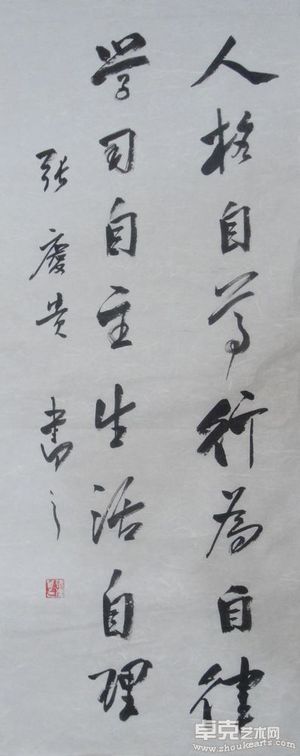 人格自尊行为自律
学习自主生活自理
张庆贵书之
卓克艺术网
www.zhoukearts.com